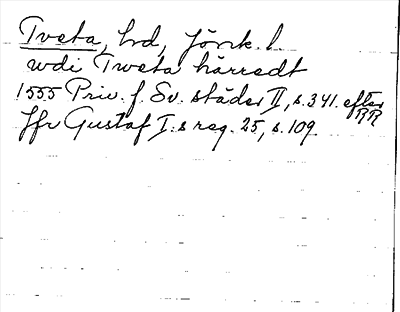 Tveta, hrd, Jönk. l.
udi Tweta härredt
1555 Priv. f. Sv. städer II, s. 341. efter RR
Jfr Gustaf I:s reg. 25, s. 109.